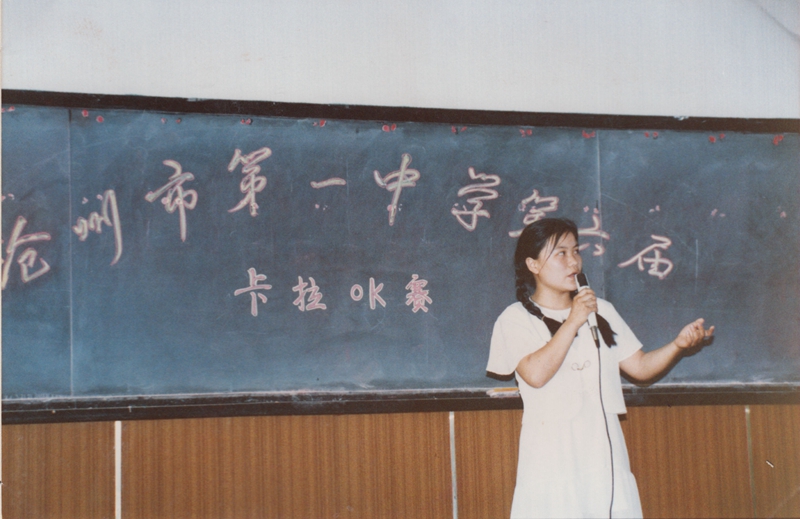 沧州市第一中学六届
卡拉OK赛